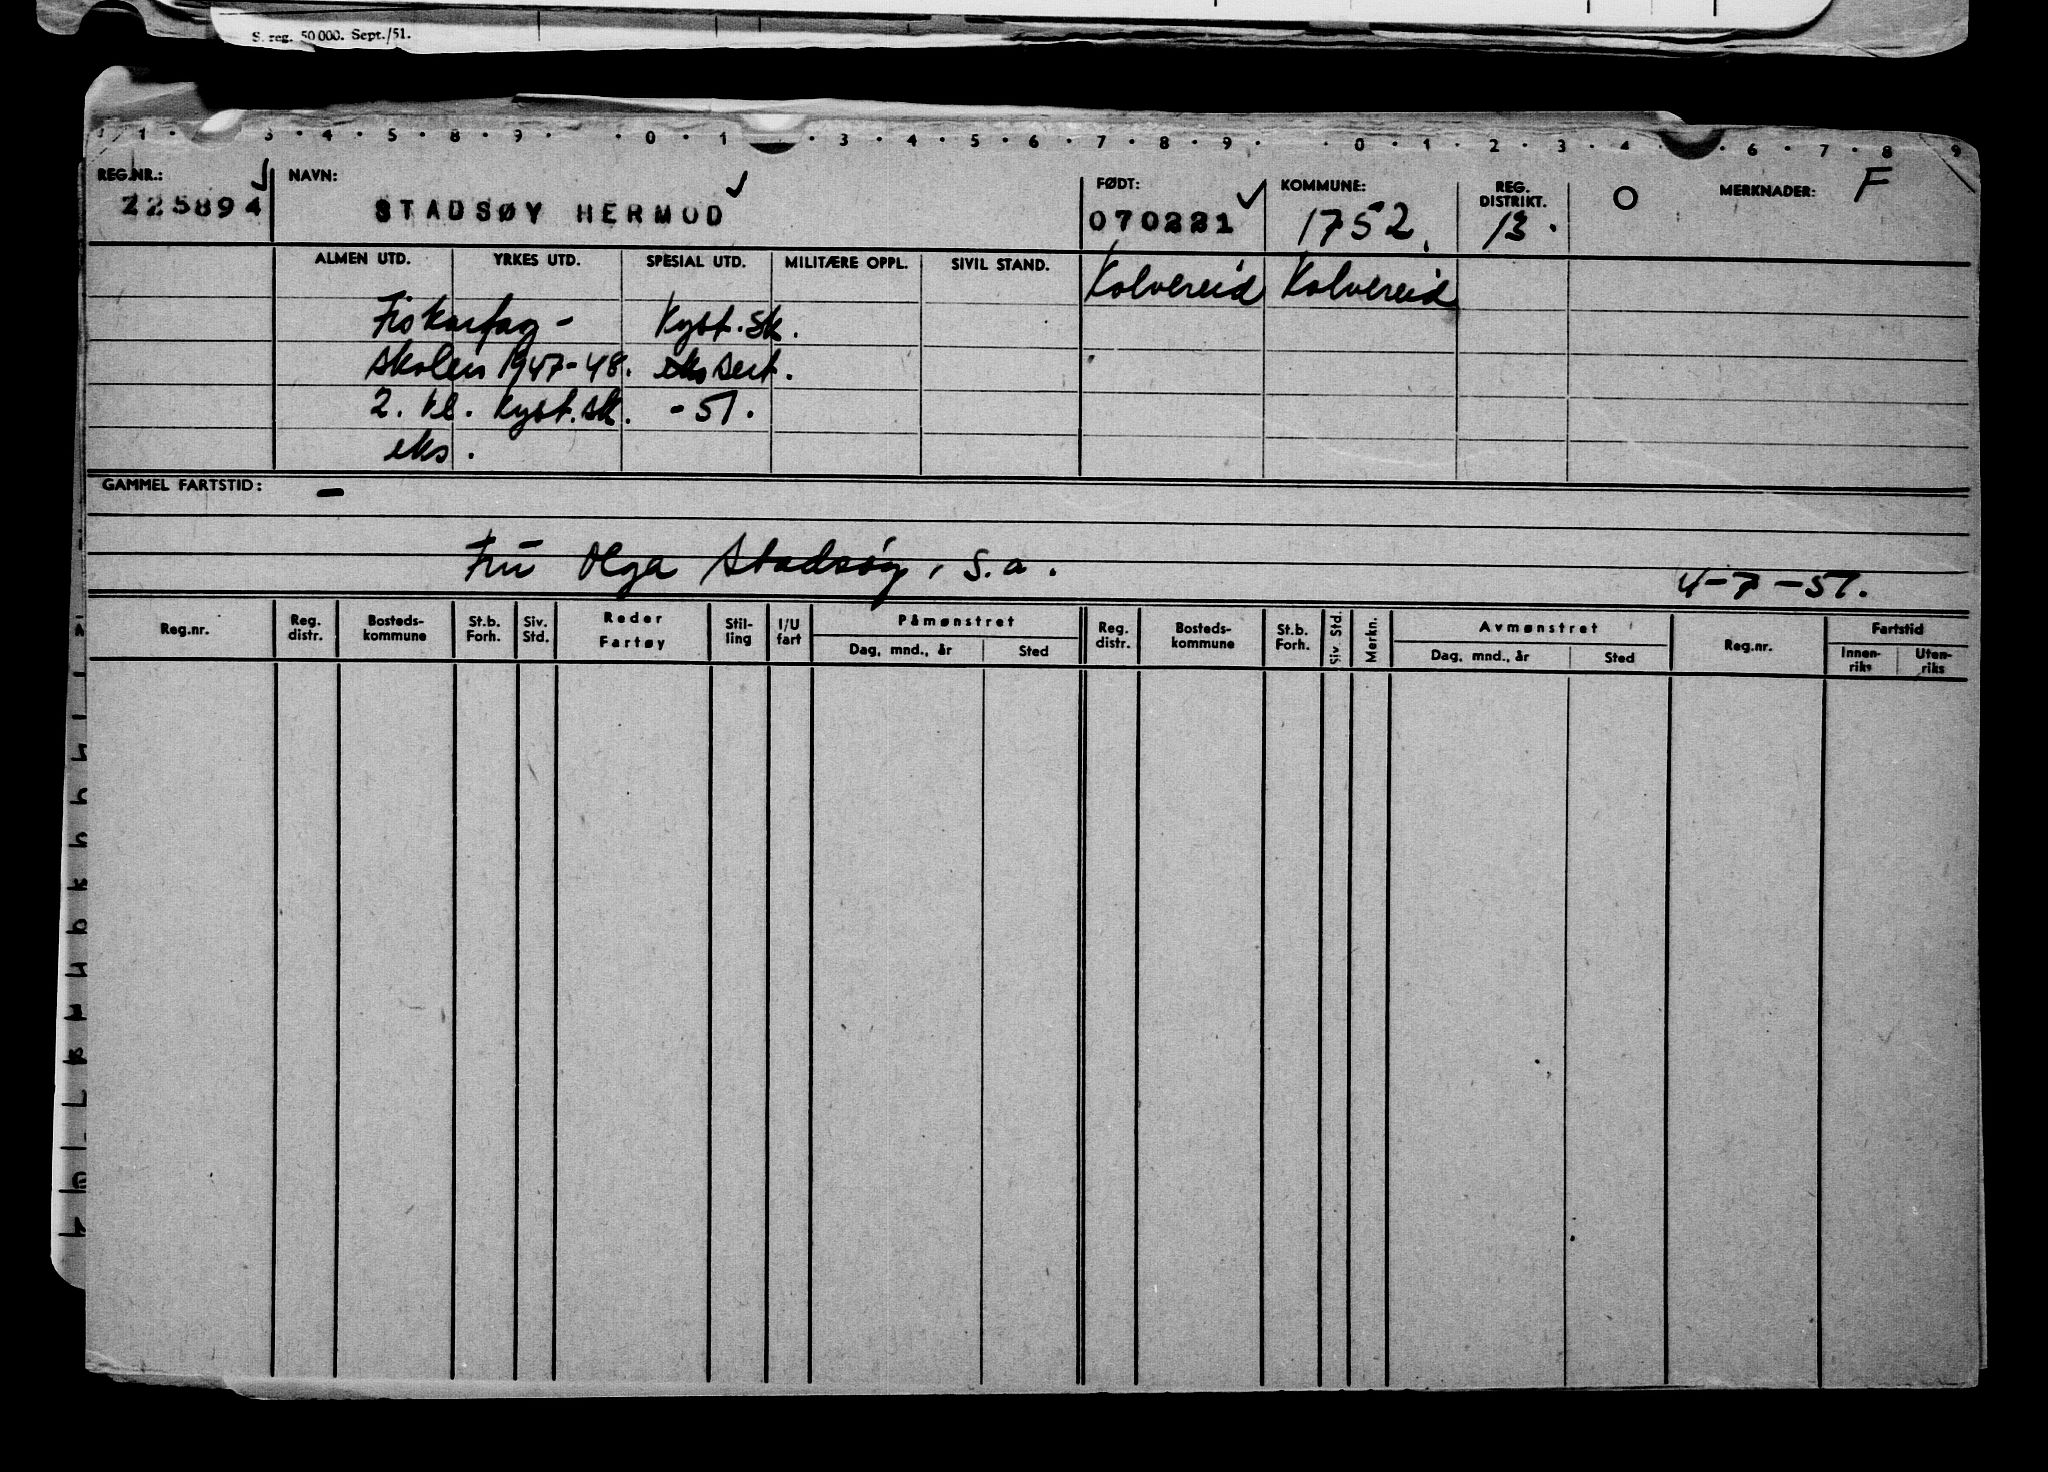 S. reg. 50 000. Sept./51.
1 · 3 · 4 · 5 · 8 · 9 · · 0 · 1 · 3 · 4 · 5 · 6 · 7 · 8 · 9 · · 0 · 1 · 2 · 3 · 4 · 6 · 7 · 8 9
REG.NR.: NAVN: FØDT: KOMMUNE: REG. DISTRIKT. O MERKNADER: F
225894 STADSØY HERMOD 070221 1752. 13.
ALMEN UTD. YRKES UTD. SPESIAL UTD. MILITÆRE OPPL. SIVIL STAND. Kolvereid Kolvereid
Fiskarfag- Kyst.sk.
skolen 1947-48. sert.
2. kl. kyst.sk. -51.
eks.
GAMMEL FARTSTID: -
Fru Olga Stadsøy, s.a. 4-7-51.
Reg.nr. Reg. distr. Bosteds- kommune St.b. Forh. Siv. Std. Reder Fartøy Stil- ling I/U fart Påmønstret Reg. distr. Bosteds- kommune St.b. Forh. Siv. Std. Merkn. Avmønstret Reg.nr. Fartstid
Dag, mnd., år Sted Dag, mnd., år Sted Innen- riks Uten- riks